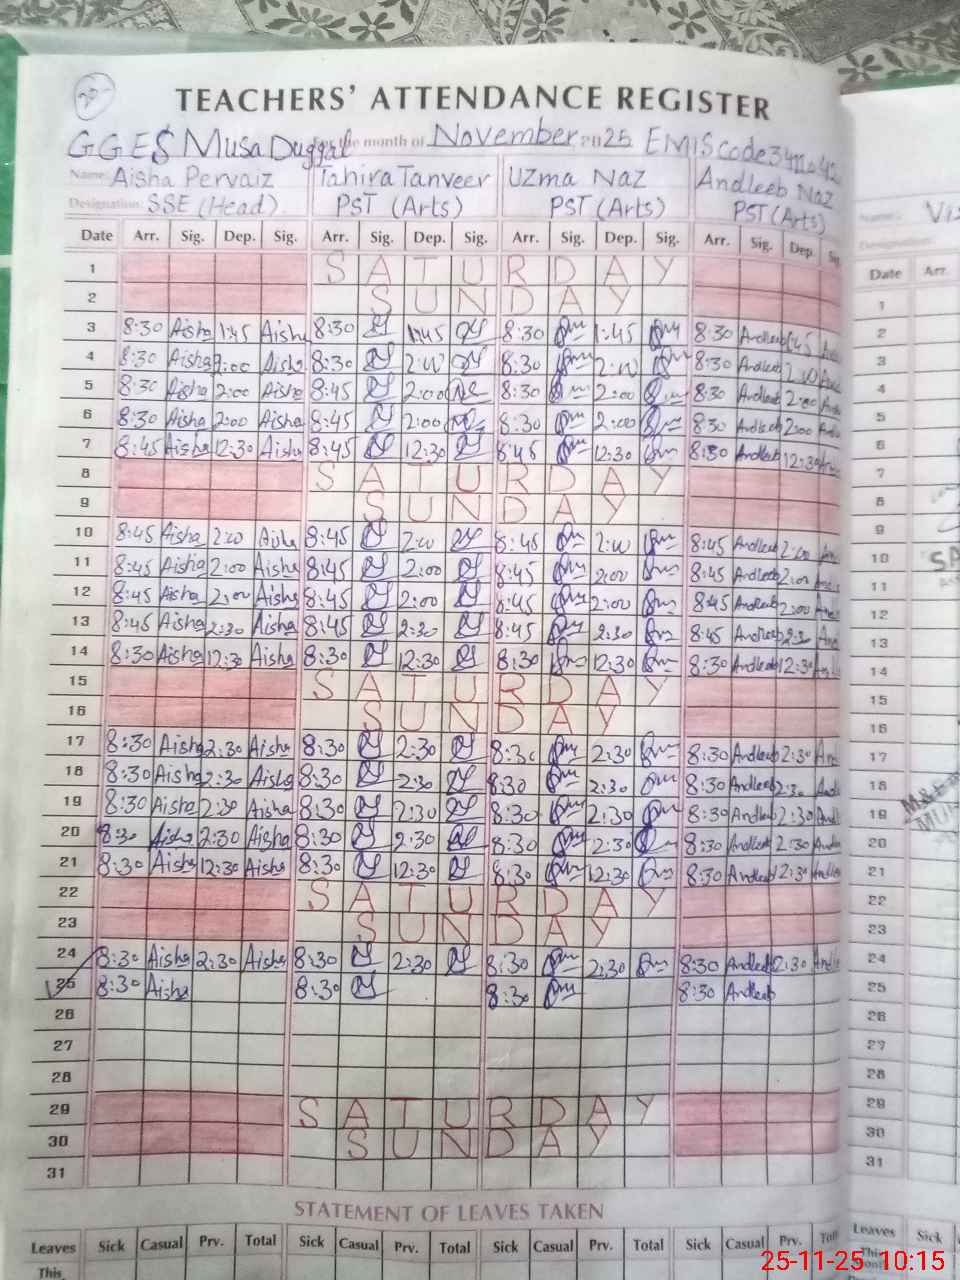 TEACHERS' ATTENDANCE REGISTER
GGES Musa Duggal the month of November 2025 EMIS Code
Name: Aisha Pervaiz Tahira Tanveer Uzma Naz Andleeb Naz
Designation: SSE (Head) PST (Arts) PST (Arts) PST (Arts)
Date Arr. Sig. Dep. Sig. Arr. Sig. Dep. Sig. Arr. Sig. Dep. Sig. Arr. Sig. Dep.
1 SATURDAY
2 SUNDAY
3 8:30 Aisha 1:45 Aisha 8:30 1:45 8:30 1:45 8:30 Andleeb
4 8:30 Aisha 2:00 Aisha 8:30 2:00 8:30 2:00 8:30 Andleeb 2:00
5 8:30 Aisha 2:00 Aisha 8:45 2:00 8:30 2:00 8:30 Andleeb 2:00
6 8:30 Aisha 2:00 Aisha 8:45 2:00 8:30 2:00 8:30 Andleeb 2:00
7 8:45 Aisha 12:30 Aisha 8:45 12:30 8:45 12:30 8:30 Andleeb 12:30
8 SATURDAY
9 SUNDAY
10 8:45 Aisha 2:00 Aisha 8:45 2:00 8:45 2:00 8:45 Andleeb 2:00
11 8:45 Aisha 2:00 Aisha 8:45 2:00 8:45 2:00 8:45 Andleeb 2:00
12 8:45 Aisha 2:00 Aisha 8:45 2:00 8:45 2:00 8:45 Andleeb 2:00
13 8:45 Aisha 2:30 Aisha 8:45 2:30 8:45 2:30 8:45 Andleeb 2:30
14 8:30 Aisha 12:30 Aisha 8:30 12:30 8:30 12:30 8:30 Andleeb 12:30
15 SATURDAY
16 SUNDAY
17 8:30 Aisha 2:30 Aisha 8:30 2:30 8:30 2:30 8:30 Andleeb 2:30
18 8:30 Aisha 2:30 Aisha 8:30 2:30 8:30 2:30 8:30 Andleeb 2:30
19 8:30 Aisha 2:30 Aisha 8:30 2:30 8:30 2:30 8:30 Andleeb 2:30
20 8:30 Aisha 2:30 Aisha 8:30 2:30 8:30 12:30 8:30 Andleeb 2:30
21 8:30 Aisha 12:30 Aisha 8:30 12:30 8:30 12:30 8:30 Andleeb 12:30
22 SATURDAY
23 SUNDAY
24 8:30 Aisha 2:30 Aisha 8:30 2:30 8:30 2:30 8:30 Andleeb 2:30
25 8:30 Aisha 8:30 8:30 8:30 Andleeb
26
27
28
29 SATURDAY
30 SUNDAY
31
STATEMENT OF LEAVES TAKEN
Leaves Sick Casual Prv. Total Sick Casual Prv. Total Sick Casual Prv. Total Sick Casual Prv.
This
Name:
Designation:
Date Arr.
1
2
3
4
5
6
7
8
9
10
11
12
13
14
15
16
17
18
19
20
21
22
23
24
25
26
27
28
29
30
31
Leaves Sick
This Month
25-11-25 10:15